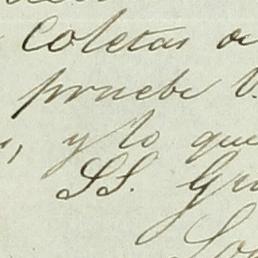 Coletas de
pruebe V.
, y lo que
SS. Gra